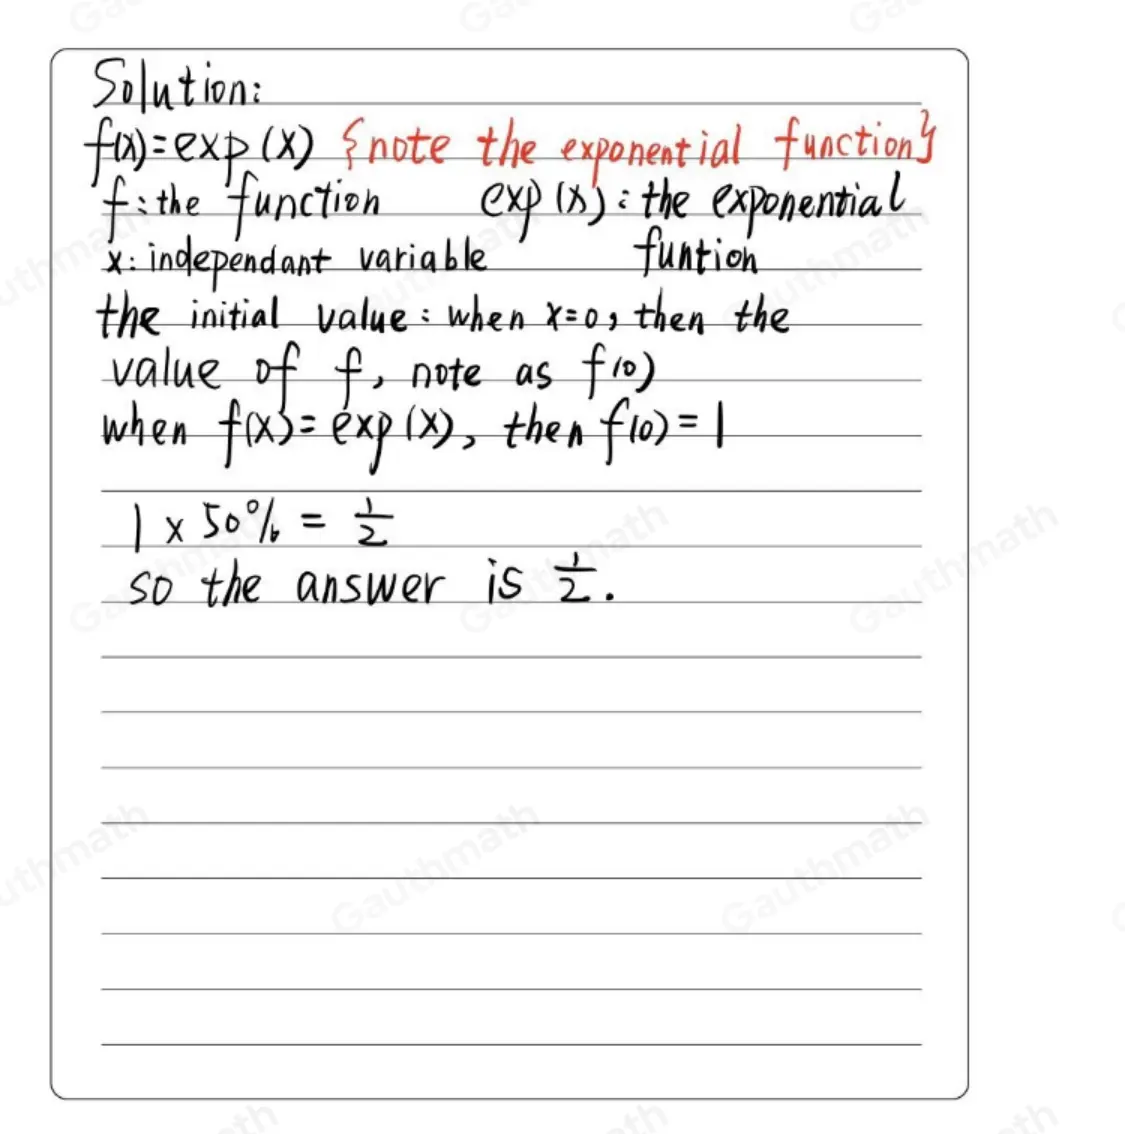 Solution:
f(x)=exp(x) {note the exponential function}
f: the function exp(x): the exponential
x: independant variable funtion
the initial value: when x=0, then the
value of f, note as f(0)
when f(x)=exp(x), then f(0)=1
1 x 50% = 1/2
so the answer is 1/2.
Gauthmath
Gauthmath
Gauthmath
Gauthmath
Gauthmath